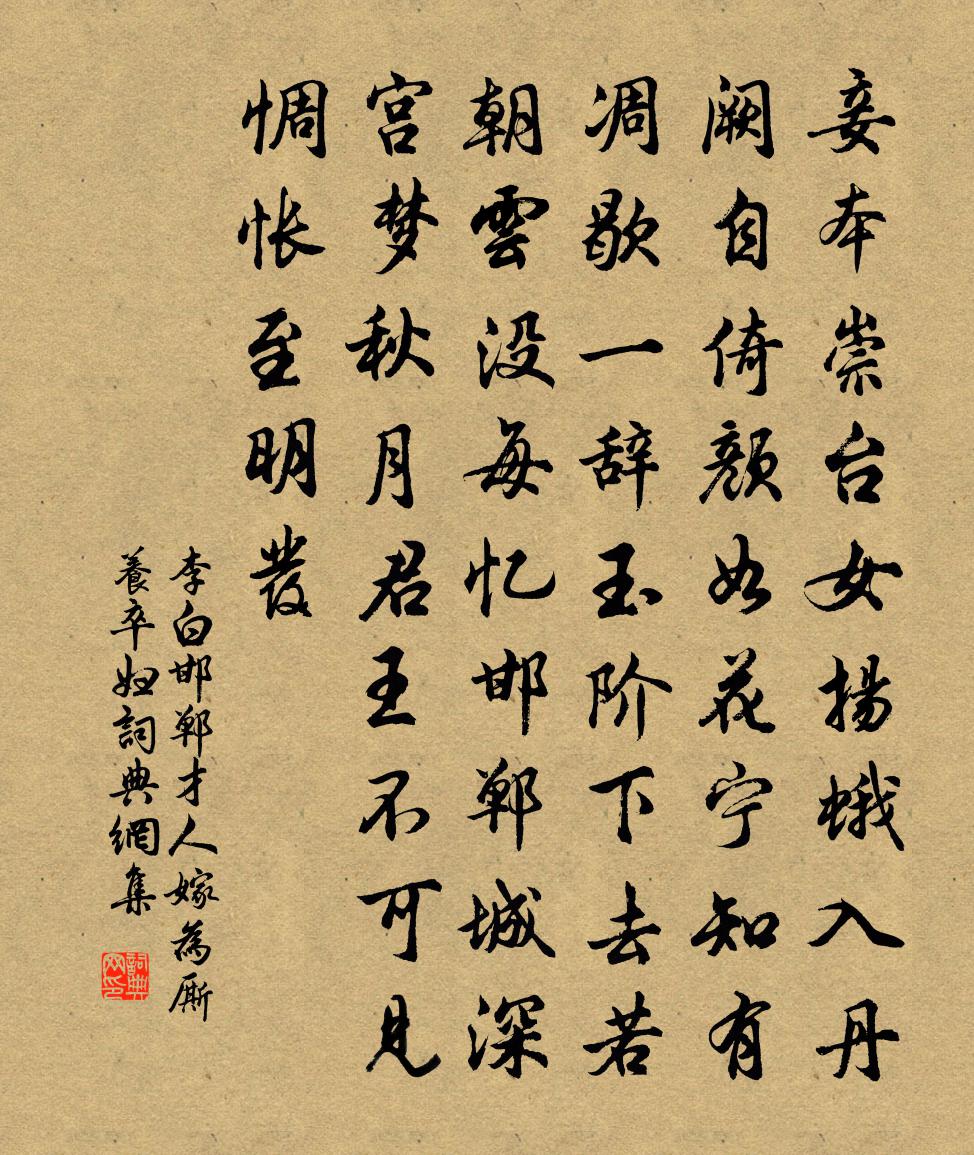 妾本崇台女揚蛾入丹
阙自倚顏如花宁知有
凋歇一辞玉阶下去若
朝雲没每忆邯郸城深
宫梦秋月君王不可見
惆怅至明發
李白邯郸才人嫁為厮
養卒婦詞典網集
詞典网印